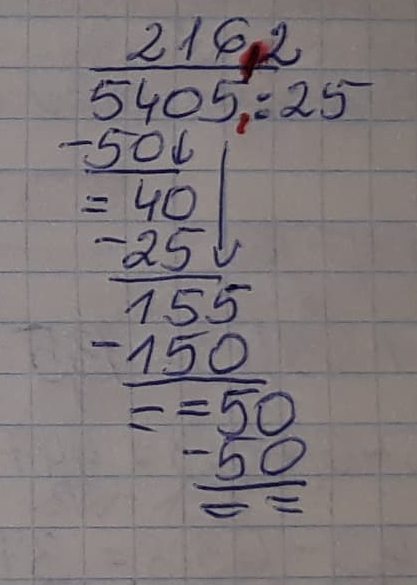 216,2
5405,:25
-50
= 40
-25
155
-150
= = 50
-50
= =